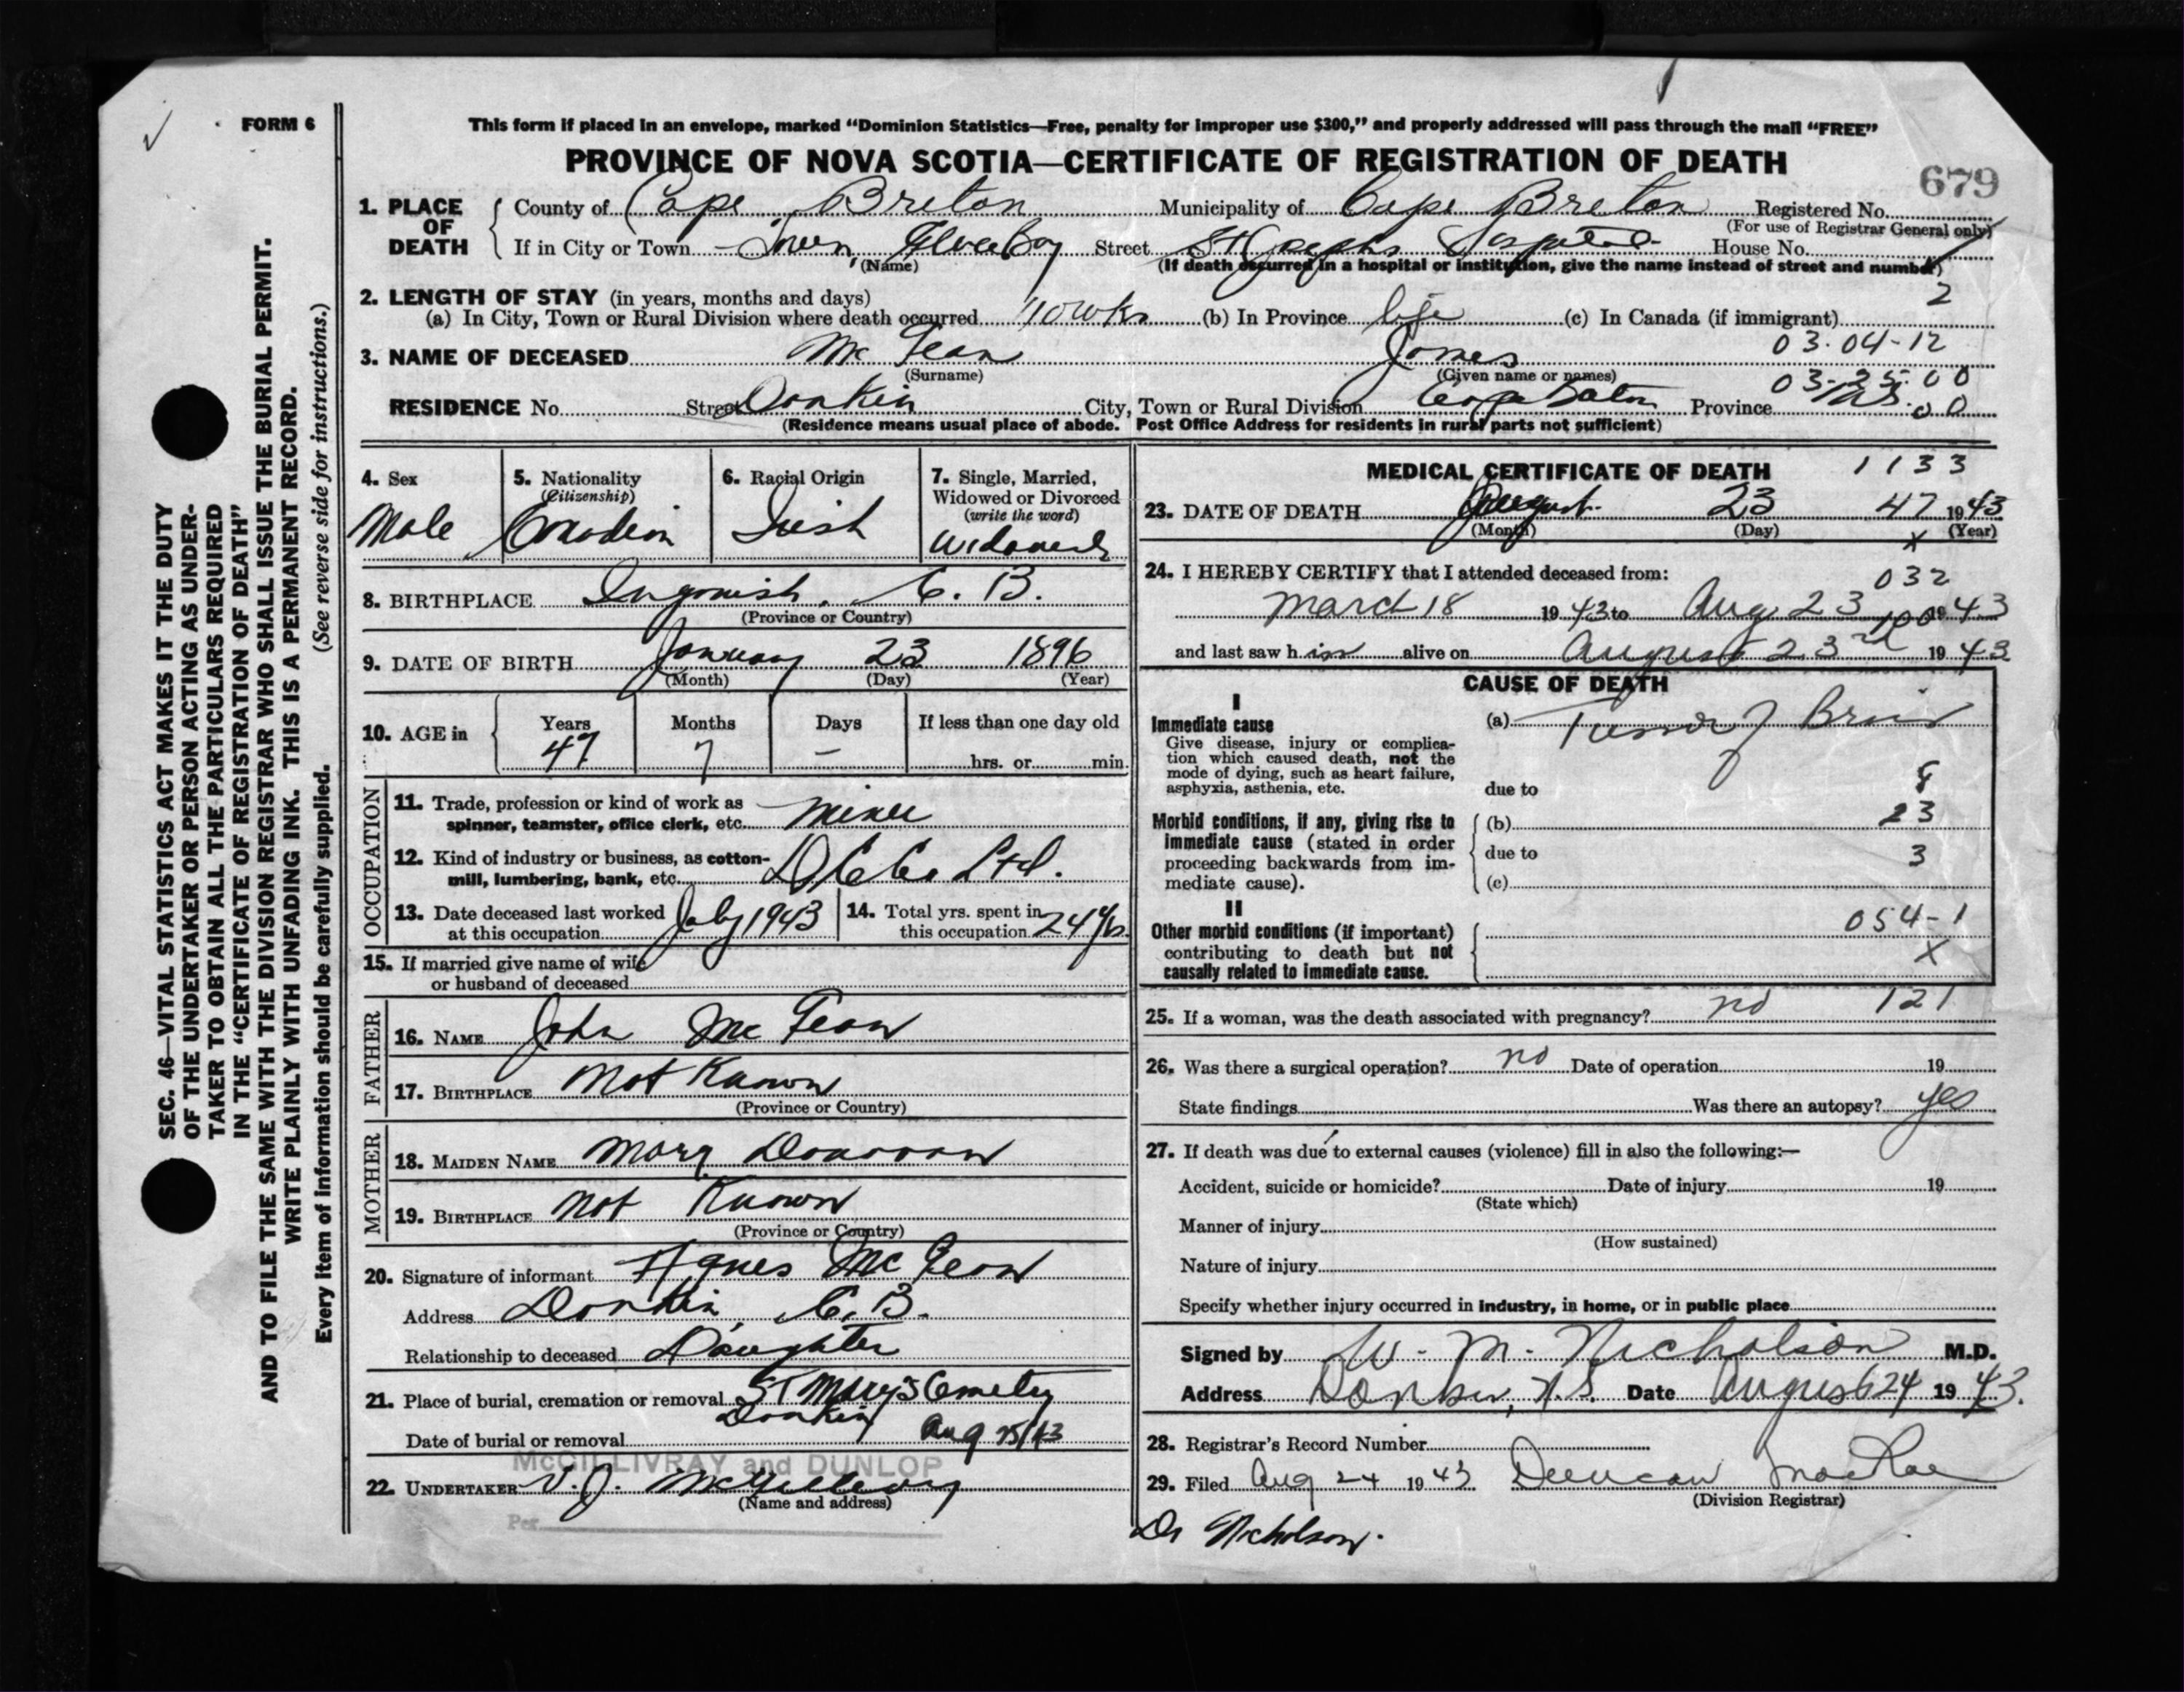 FORM 6
This form if placed in an envelope, marked "Dominion Statistics—Free, penalty for improper use $300," and properly addressed will pass through the mail "FREE"
PROVINCE OF NOVA SCOTIA—CERTIFICATE OF REGISTRATION OF DEATH
679
1. PLACE OF DEATH
County of Cape Breton Municipality of Cape Breton Registered No.
(For use of Registrar General only)
If in City or Town Town, Glace Bay Street St Josephs Hospital House No.
(Name) (If death occurred in a hospital or institution, give the name instead of street and number)
2. LENGTH OF STAY (in years, months and days) 2
(a) In City, Town or Rural Division where death occurred 10 wks (b) In Province life (c) In Canada (if immigrant)
3. NAME OF DECEASED Mc Gean James 03-04-12
(Surname) (Given name or names) 03-25-00
RESIDENCE No. Street Donkin City, Town or Rural Division Cape Breton Province N.S. 00
(Residence means usual place of abode. Post Office Address for residents in rural parts not sufficient)
4. Sex
Male
5. Nationality
(Citizenship)
Canadian
6. Racial Origin
Irish
7. Single, Married,
Widowed or Divorced
(write the word)
Widowed
8. BIRTHPLACE Ingonish, C. B.
(Province or Country)
9. DATE OF BIRTH January 23 1896
(Month) (Day) (Year)
10. AGE in
Years Months Days If less than one day old
47 7 — hrs. or min.
OCCUPATION
11. Trade, profession or kind of work as
spinner, teamster, office clerk, etc. Miner
12. Kind of industry or business, as cotton-
mill, lumbering, bank, etc. D C Co. Ltd.
13. Date deceased last worked
at this occupation July 1943
14. Total yrs. spent in
this occupation 24 yrs.
15. If married give name of wife
or husband of deceased
FATHER
16. NAME John Mc Gean
17. BIRTHPLACE Not Known
(Province or Country)
MOTHER
18. MAIDEN NAME Mary Donovan
19. BIRTHPLACE Not Known
(Province or Country)
20. Signature of informant Agnes Mc Gean
Address Donkin, C. B.
Relationship to deceased Daughter
21. Place of burial, cremation or removal St Mary's Cemetery
Donkin
Date of burial or removal Aug 25/43
McGILLIVRAY and DUNLOP
22. UNDERTAKER V. J. McGillivray
(Name and address)
Per
MEDICAL CERTIFICATE OF DEATH 1133
23. DATE OF DEATH August 23 47 1943
(Month) (Day) x (Year)
24. I HEREBY CERTIFY that I attended deceased from: 032
March 18 1943 to Aug 23 1943
100
and last saw him alive on August 23rd 1943
CAUSE OF DEATH
I
Immediate cause
Give disease, injury or complica-
tion which caused death, not the
mode of dying, such as heart failure,
asphyxia, asthenia, etc.
(a) Tumor of Brain
due to 8
Morbid conditions, if any, giving rise to
immediate cause (stated in order
proceeding backwards from im-
mediate cause).
(b) 23
due to 3
(c)
II
Other morbid conditions (if important)
contributing to death but not
causally related to immediate cause.
054-1
X
25. If a woman, was the death associated with pregnancy? no 121
26. Was there a surgical operation? no Date of operation 19
State findings Was there an autopsy? yes
27. If death was due to external causes (violence) fill in also the following:—
Accident, suicide or homicide? Date of injury 19
(State which)
Manner of injury
(How sustained)
Nature of injury
Specify whether injury occurred in industry, in home, or in public place
Signed by W. M. Nicholson M.D.
Address Donkin, N.S. Date August 24 1943.
28. Registrar's Record Number
29. Filed Aug 24 1943 Duncan MacRae
(Division Registrar)
Dr Nicholson.
SEC. 46—VITAL STATISTICS ACT MAKES IT THE DUTY
OF THE UNDERTAKER OR PERSON ACTING AS UNDER-
TAKER TO OBTAIN ALL THE PARTICULARS REQUIRED
IN THE "CERTIFICATE OF REGISTRATION OF DEATH"
AND TO FILE THE SAME WITH THE DIVISION REGISTRAR WHO SHALL ISSUE THE BURIAL PERMIT.
WRITE PLAINLY WITH UNFADING INK. THIS IS A PERMANENT RECORD.
Every item of information should be carefully supplied. (See reverse side for instructions.)